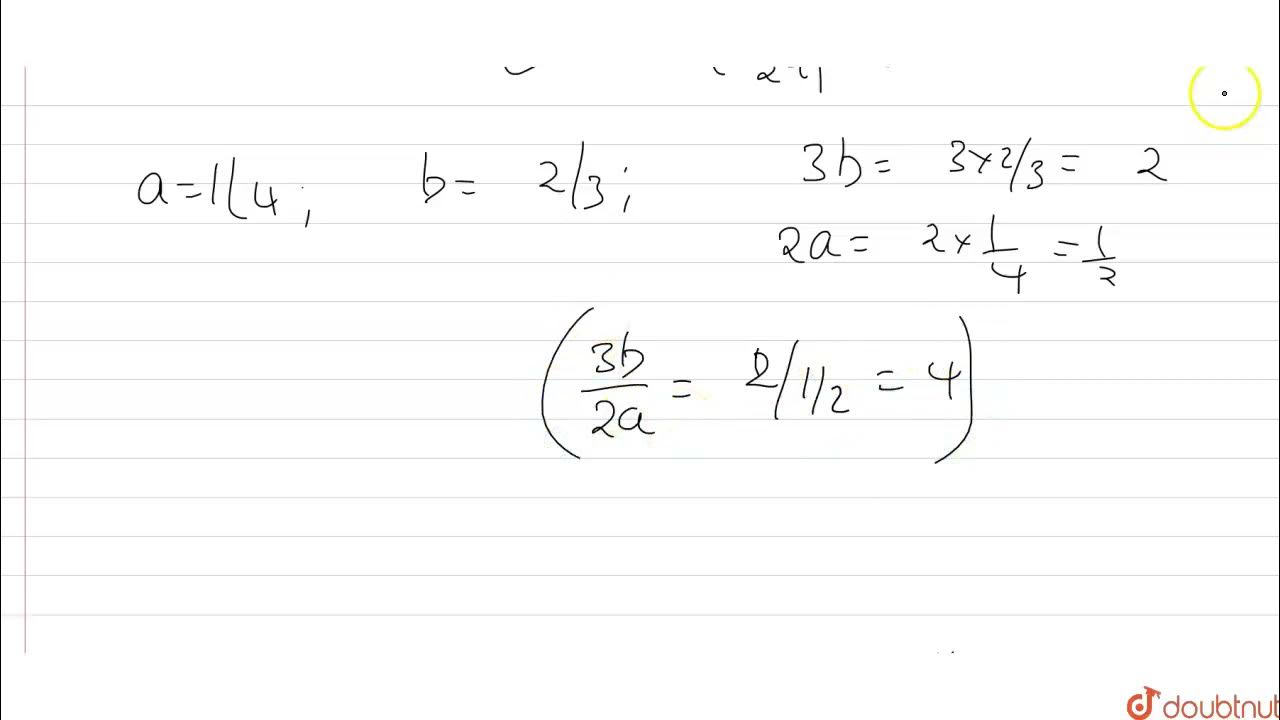 a=1/4; b= 2/3; 3b= 3×2/3= 2
2a= 2×1/4 =1/2
(3b/2a = 2/1/2 = 4)
doubtnut